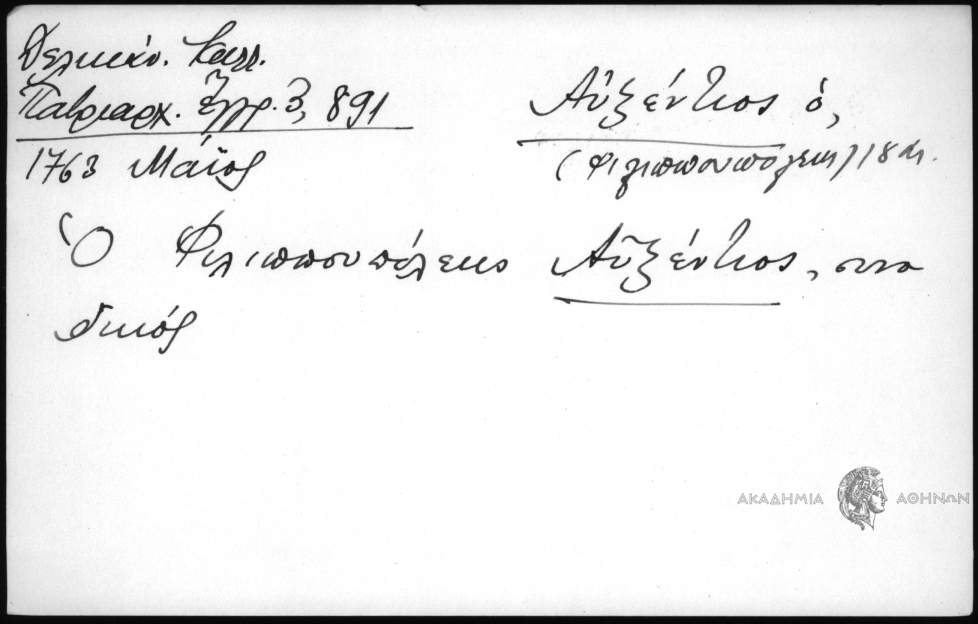 Δελικάν. Καλλ.
Πατριαρχ. Ἔγγρ. 3, 891
1763 Μάϊος
Αὐξέντιος ὁ,
(Φιλιππουπόλεως) 18 αι.
Ὁ Φιλιππουπόλεως Αὐξέντιος, συνο
δικός
ΑΚΑΔΗΜΙΑ ΑΘΗΝΩΝ